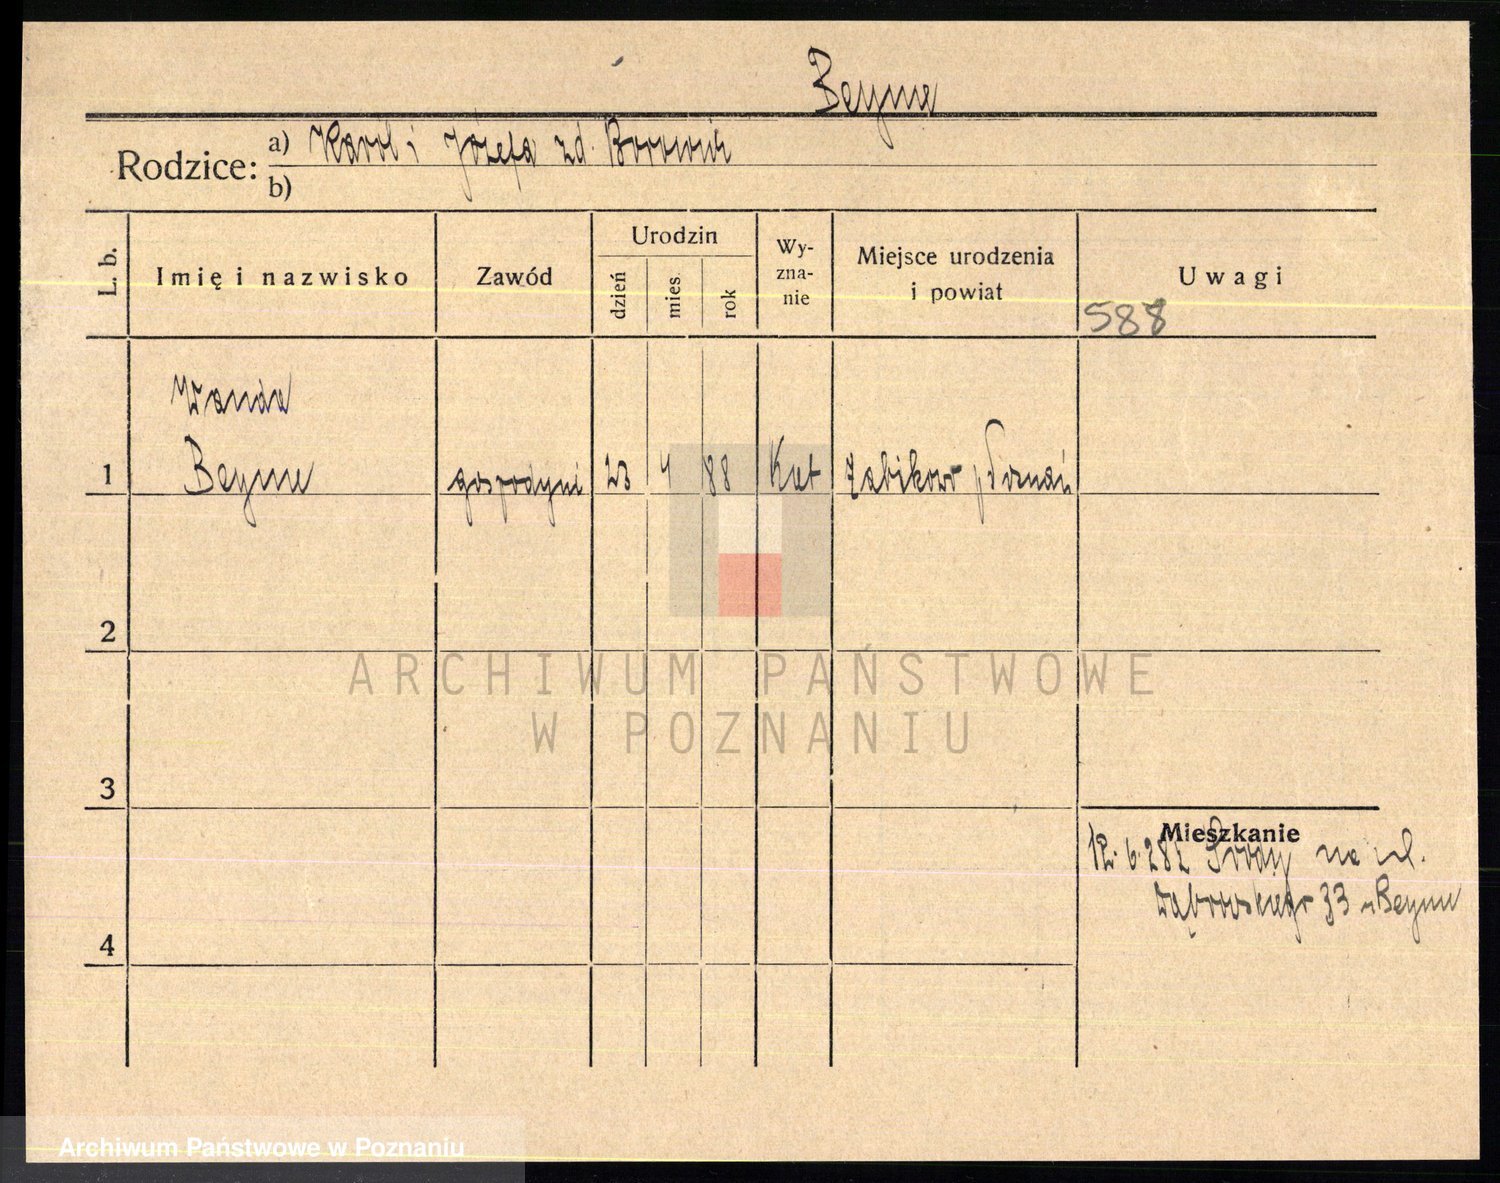 Beyme
Rodzice: a) Karol i Józefa zd.
b)
L. b.
Imię i nazwisko
Zawód
Urodzin
dzień
mies
rok
Wy-
zna-
nie
Miejsce urodzenia
i powiat
Uwagi
588
Wanda
1 Beyme gospodyni 23 4 88 Kat Żabikowo p. Poznań
2
3
4
Mieszkanie
Środy na ul.
Dąbrowskiego 33 u Beyme
ARCHIWUM PAŃSTWOWE
W POZNANIU
Archiwum Państwowe w Poznaniu